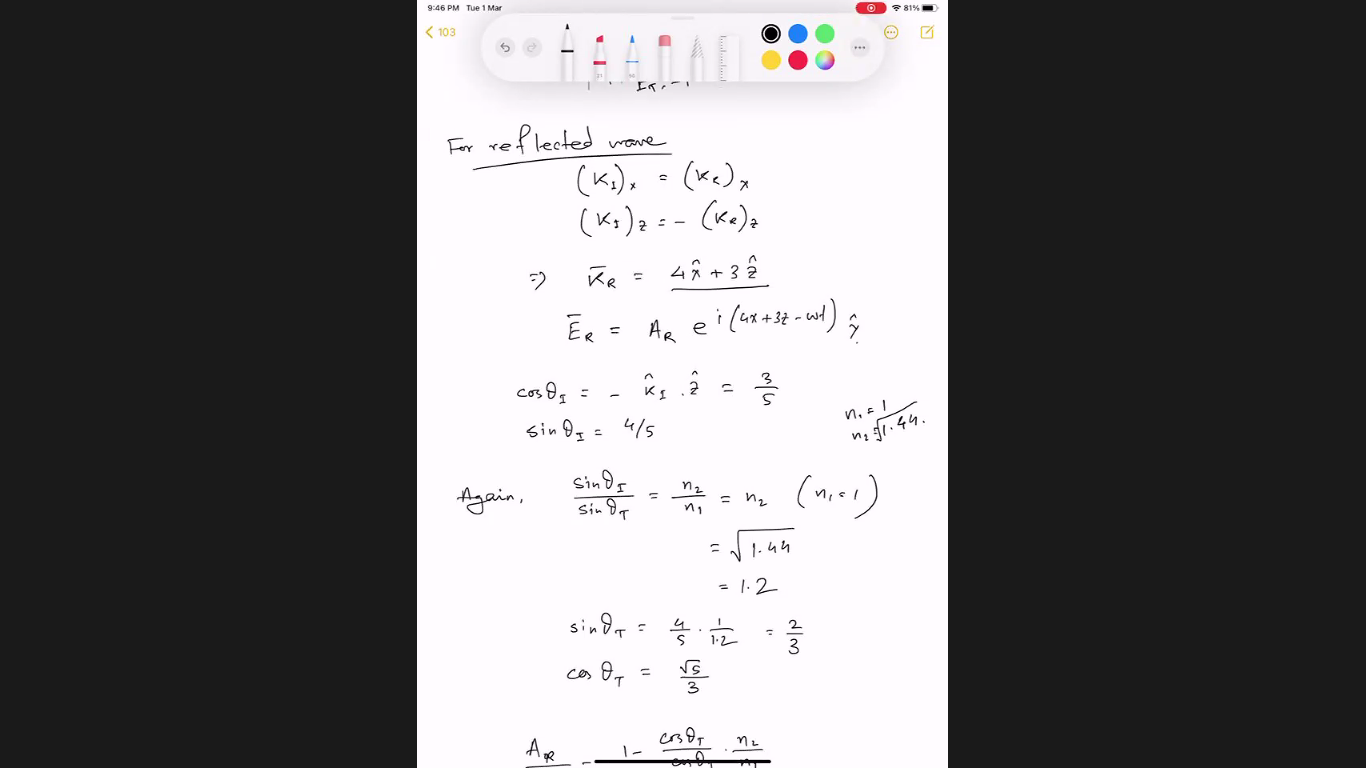 9:46 PM Tue 1 Mar
81%
103
For reflected wave
(K_I)_x = (K_R)_x
(K_I)_z = - (K_R)_z
=> K̄_R = 4x̂ + 3ẑ
Ē_R = A_R e^{i(4x+3z-ωt)} ŷ
cosθ_I = - k̂_I . ẑ = 3/5
sinθ_I = 4/5
n₁ = 1
n₂ = √1.44.
Again, sinθ_I / sinθ_T = n₂/n₁ = n₂ (n₁ = 1)
= √1.44
= 1.2
sinθ_T = 4/5 · 1/1.2 = 2/3
cosθ_T = √5/3
A_R = 1 - cosθ_T/cosθ_I · n₂/n₁